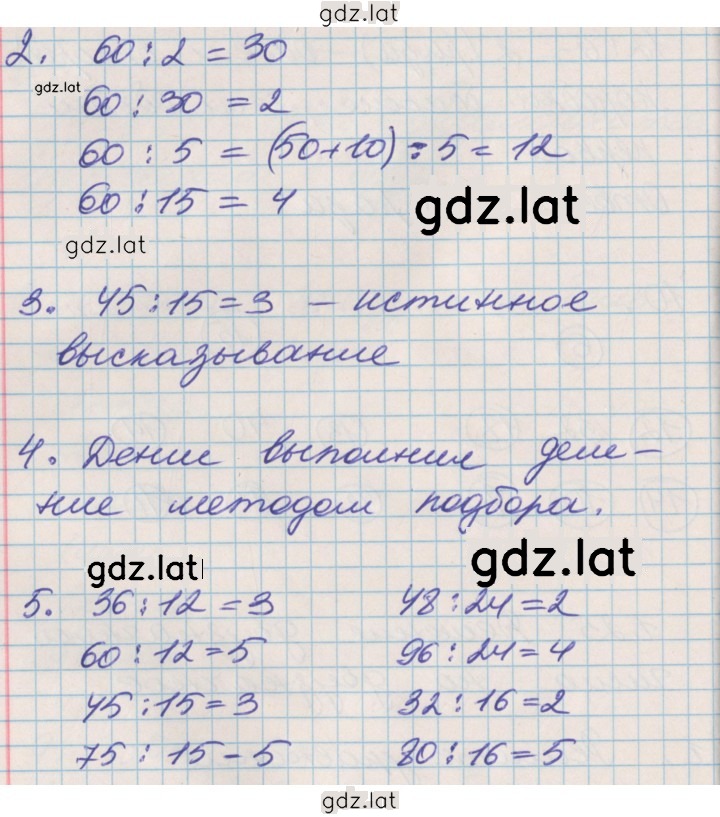 gdz.lat
2. 60 : 2 = 30
gdz.lat
60 : 30 = 2
60 : 5 = (50+10) : 5 = 12
60 : 15 = 4
gdz.lat
gdz.lat
3. 45 : 15 = 3 – истинное
высказывание
4. Дение выполнил деле-
ние методом подбора.
gdz.lat
gdz.lat
5. 36 : 12 = 3 48 : 24 = 2
60 : 12 = 5 96 : 24 = 4
45 : 15 = 3 32 : 16 = 2
75 : 15 - 5 80 : 16 = 5
gdz.lat